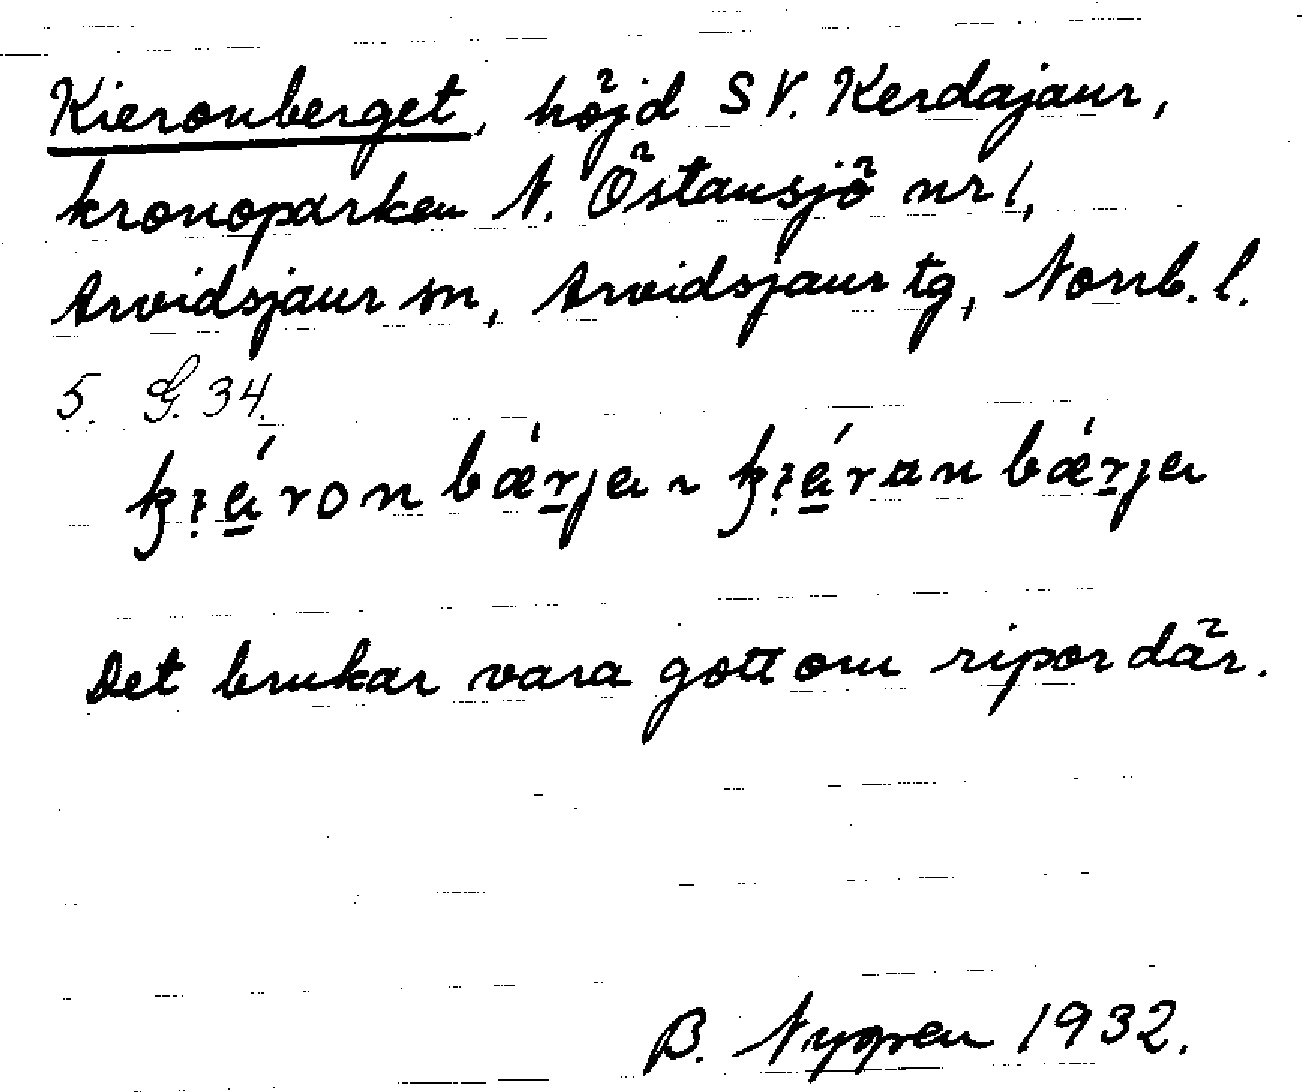 Kieronberget, höjd SV. Kerdajaur,
kronoparken N. Östansjö nr 1,
Arvidsjaur sn, Arvidsjaur tg, Norrb. l.
5. G. 34.
Det brukar vara gott om ripor där.
B. Nygren 1932.